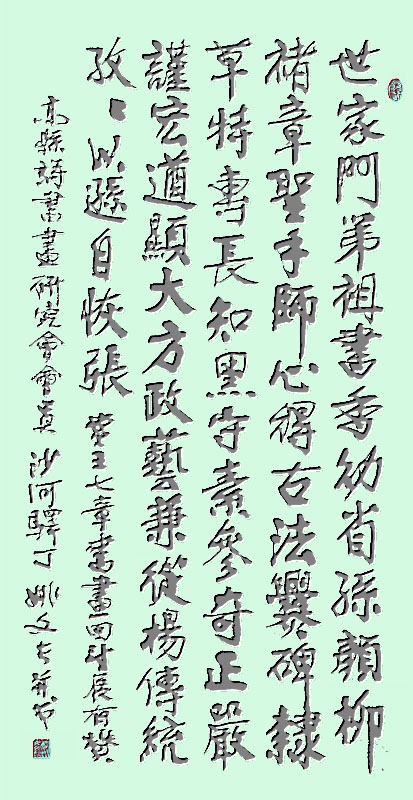 世家門弟祖書香幼省孫顏柳
褚章聖手師心得古法爨碑隸
草特專長知黑守素參奇正嚴
謹宏遒顯大方政藝兼從楊傳統
孜〻以遜自恢張
癸王七章書畫回鄉展有贊
高縣詩書畫研究會會員 沙河驛丁 姚文